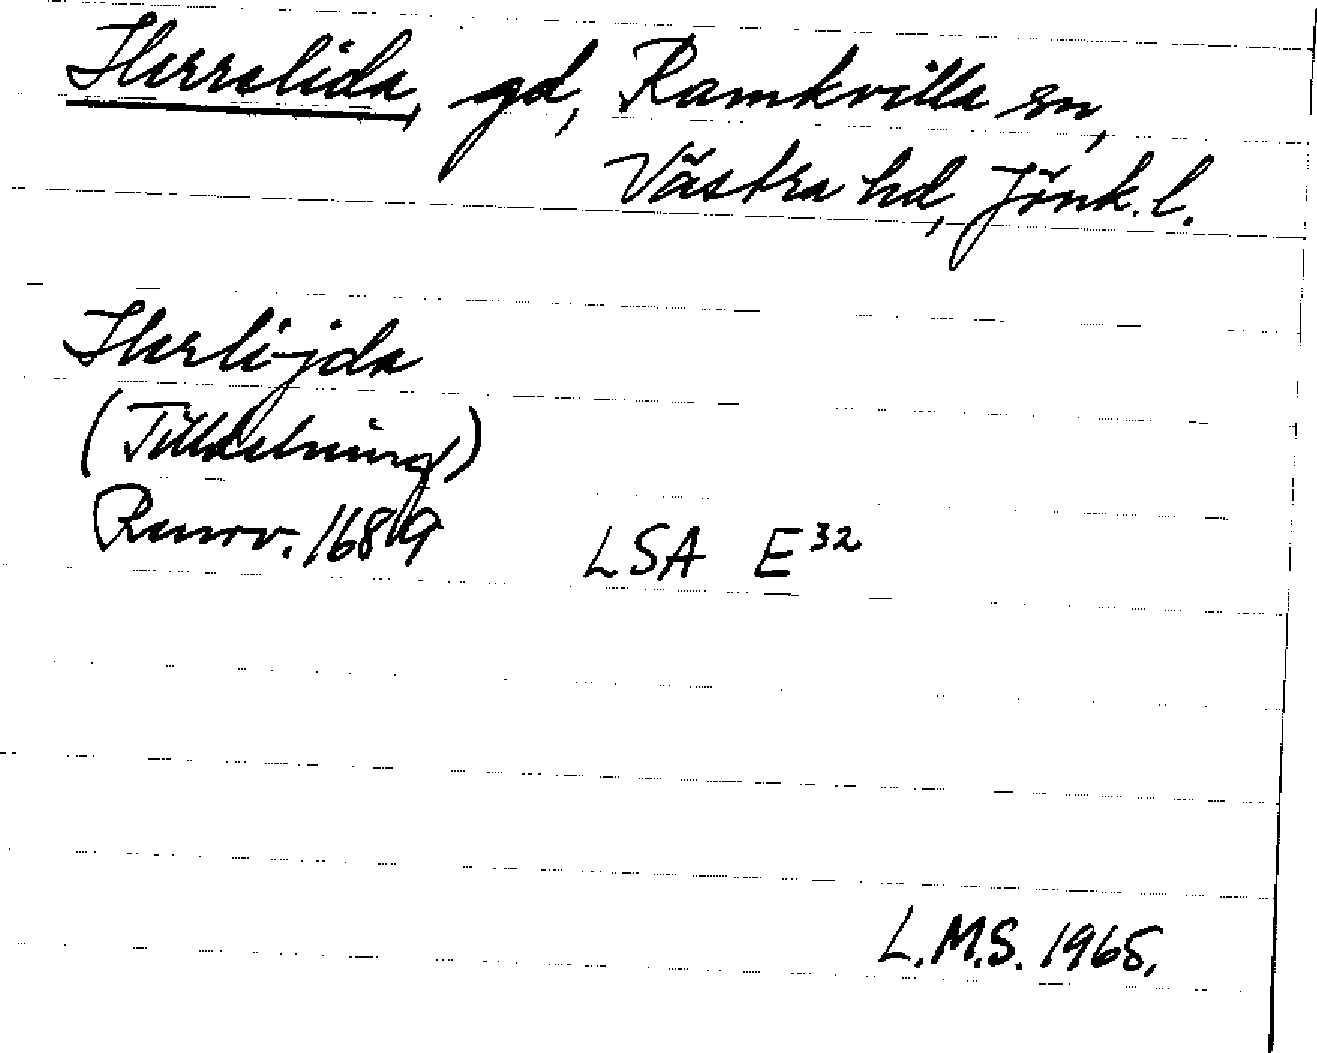 Herrelida, gd, Ramkvilla sn,
Västra hd, Jönk. l.
Herlijda
(Tilldelning)
Rusrv. 1689 LSA E 32
L.M.S. 1965.